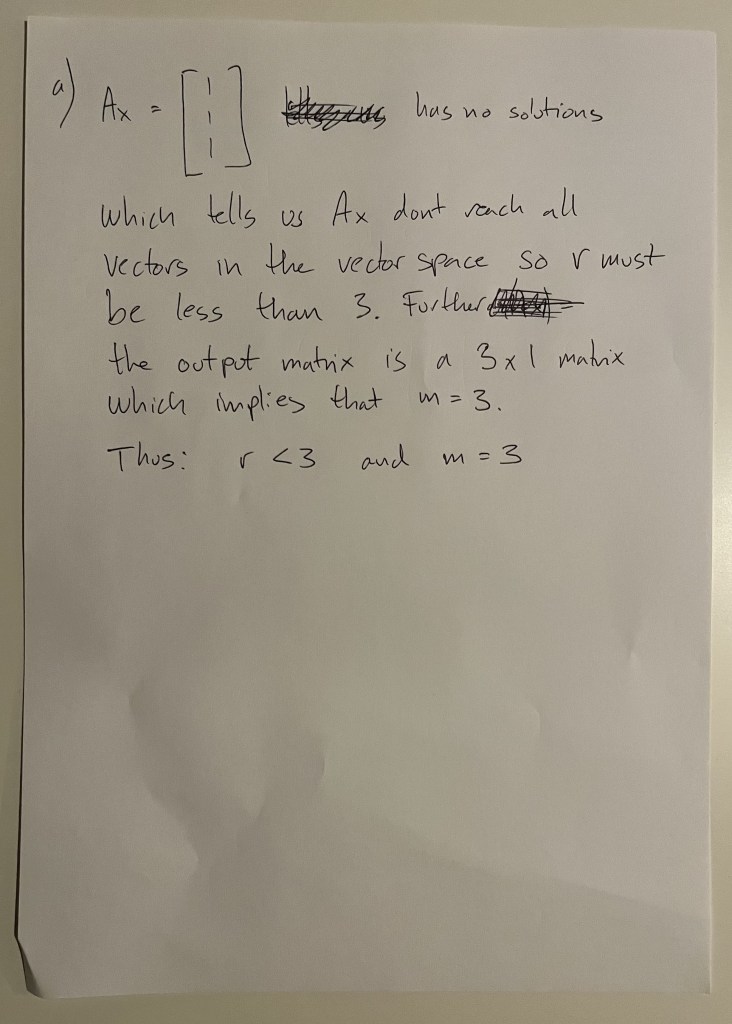 a) Ax = [1 1 1] has no solutions
which tells us Ax dont reach all
vectors in the vector space so r must
be less than 3. Further
the output matrix is a 3x1 matrix
which implies that m = 3.
Thus: r < 3 and m = 3